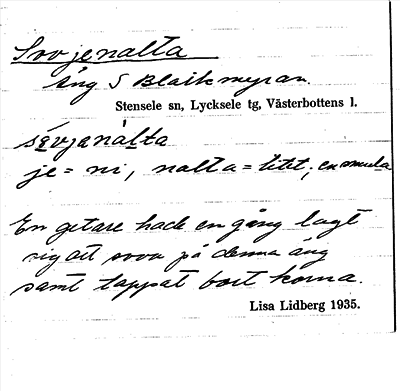 Sovjenalta
äng S Blaikmyran.
Stensele sn, Lycksele tg, Västerbottens l.
sεvjanàlta
je = ni, nalta = litet; en smula
En getare hade en gång lagt
sig att sova på denna äng
samt tappat bort korna.
Lisa Lidberg 1935.